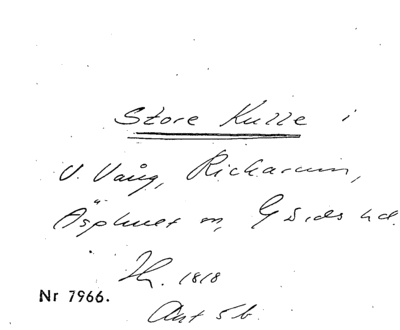 Store Kulle i
V. Vång, Richarum,
Äsphult m, Gärds hd.
1818
Nr 7966.
Akt 5 b.